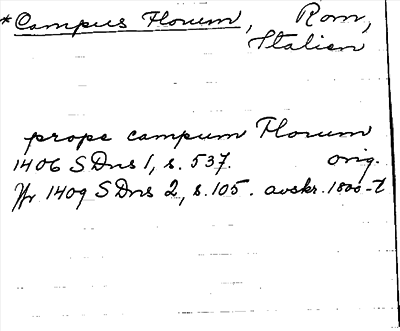 *Campus Florum, Rom,
Italien
prope campum Florum
1406 SDns 1, s. 537. orig.
Yr 1409 SDns 2, s. 105. avskr. 1800-t